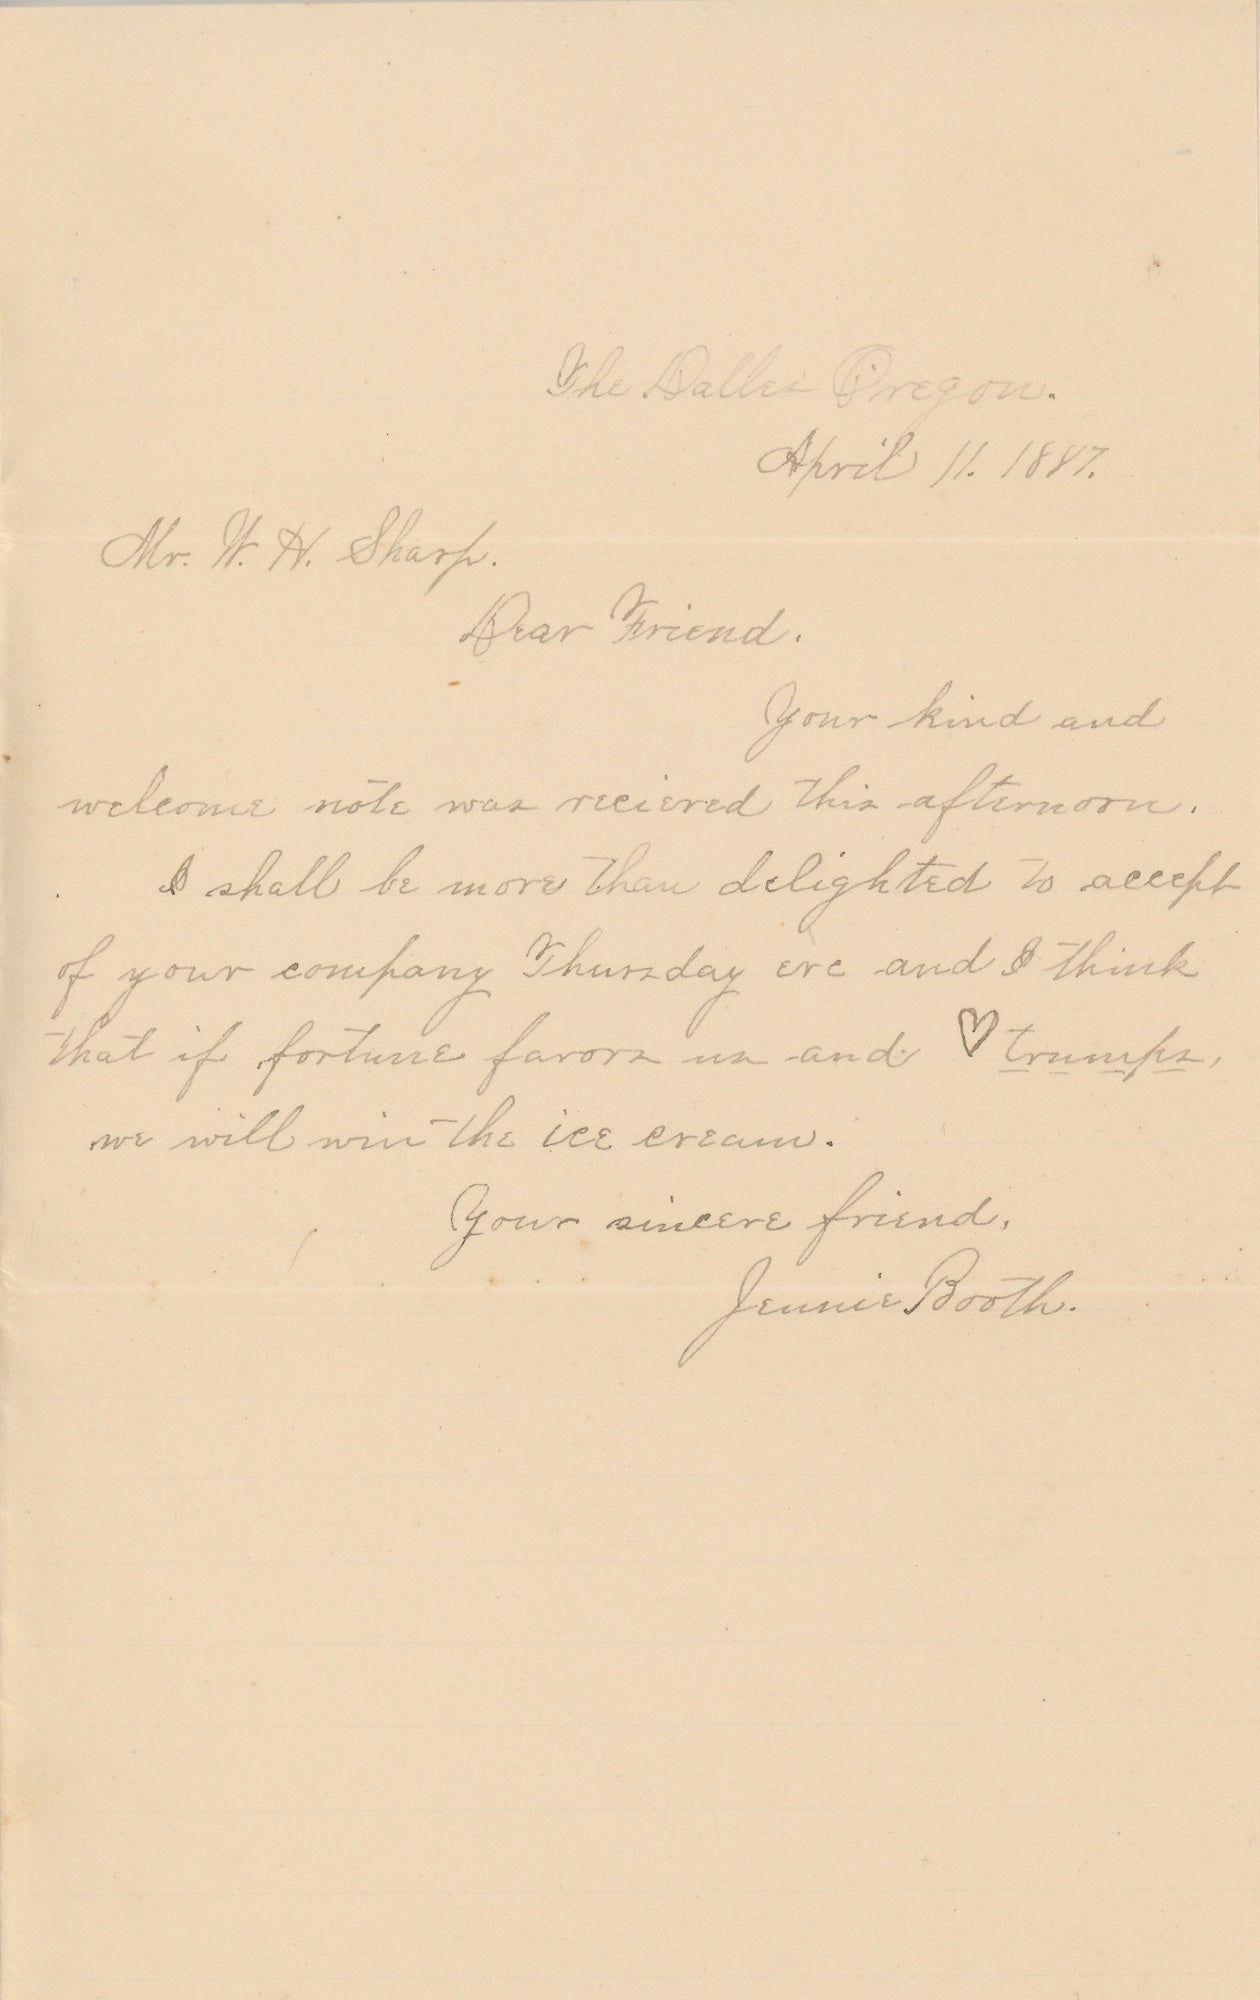 The Dalles Oregon.
April 11. 1887.
Mr. W. H. Sharp.
Dear Friend.
Your kind and
welcome note was recieved this afternoon.
I shall be more than delighted to accept
of your company Thursday eve and I think
that if fortune favors us and ♡ trumps,
we will win the ice cream.
Your sincere friend,
Jennie Booth.